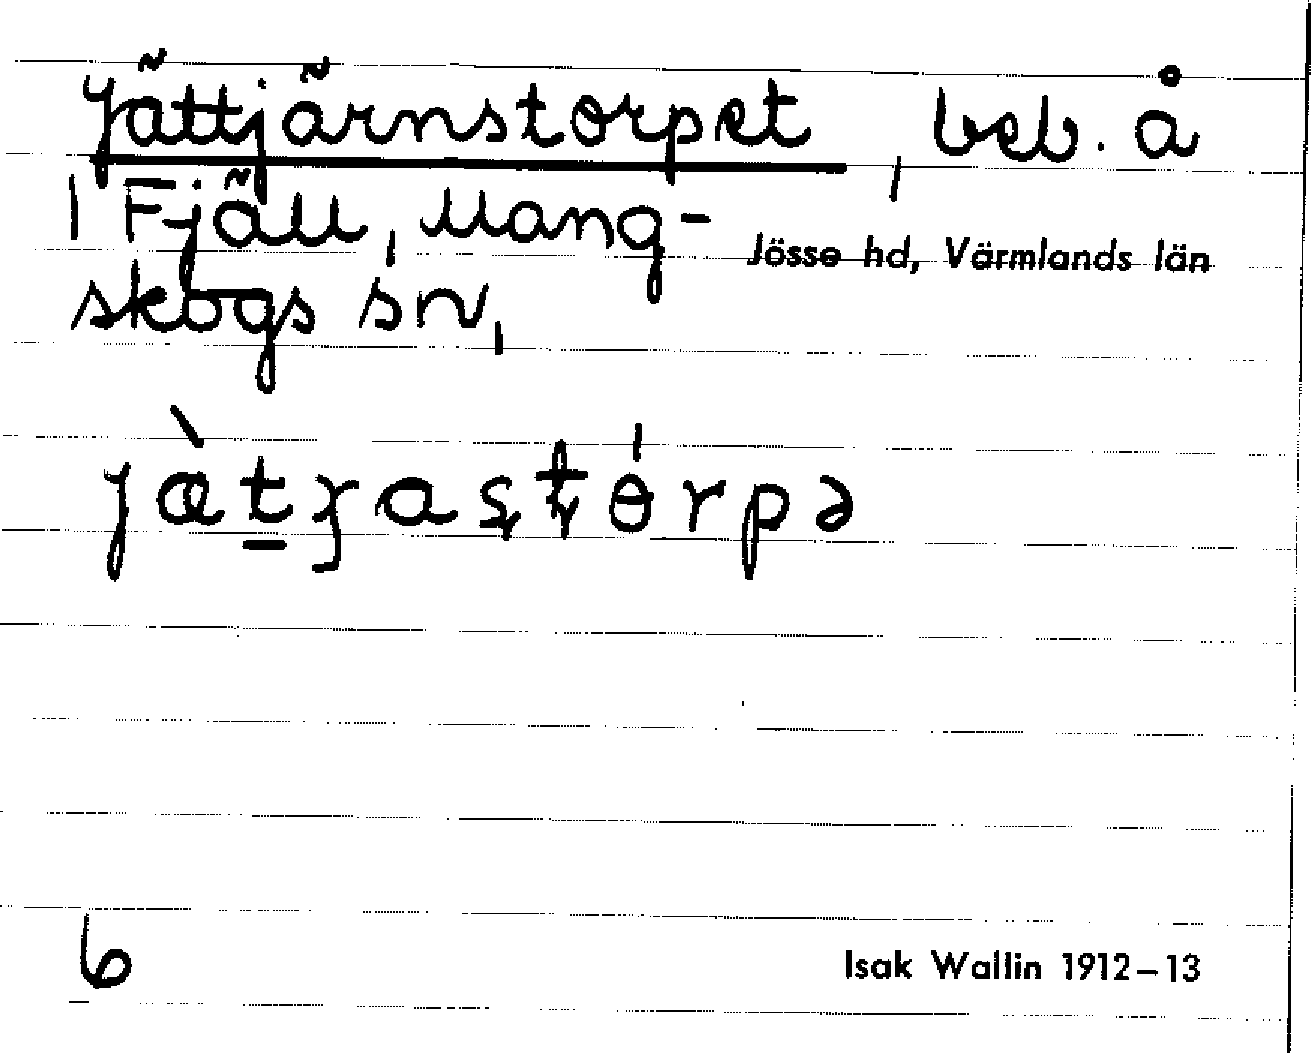 Jättjärnstorpet, beb. å
1 Fjäll, Mang-
Jösse hd, Värmlands län
skogs sn,
6
Isak Wallin 1912–13